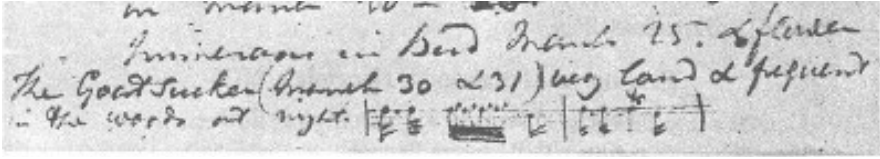 in March 10 -
numerous in Bed March 25. &
The Goat Sucker (March 30 & 31) very loud & frequent
in the woods at night.